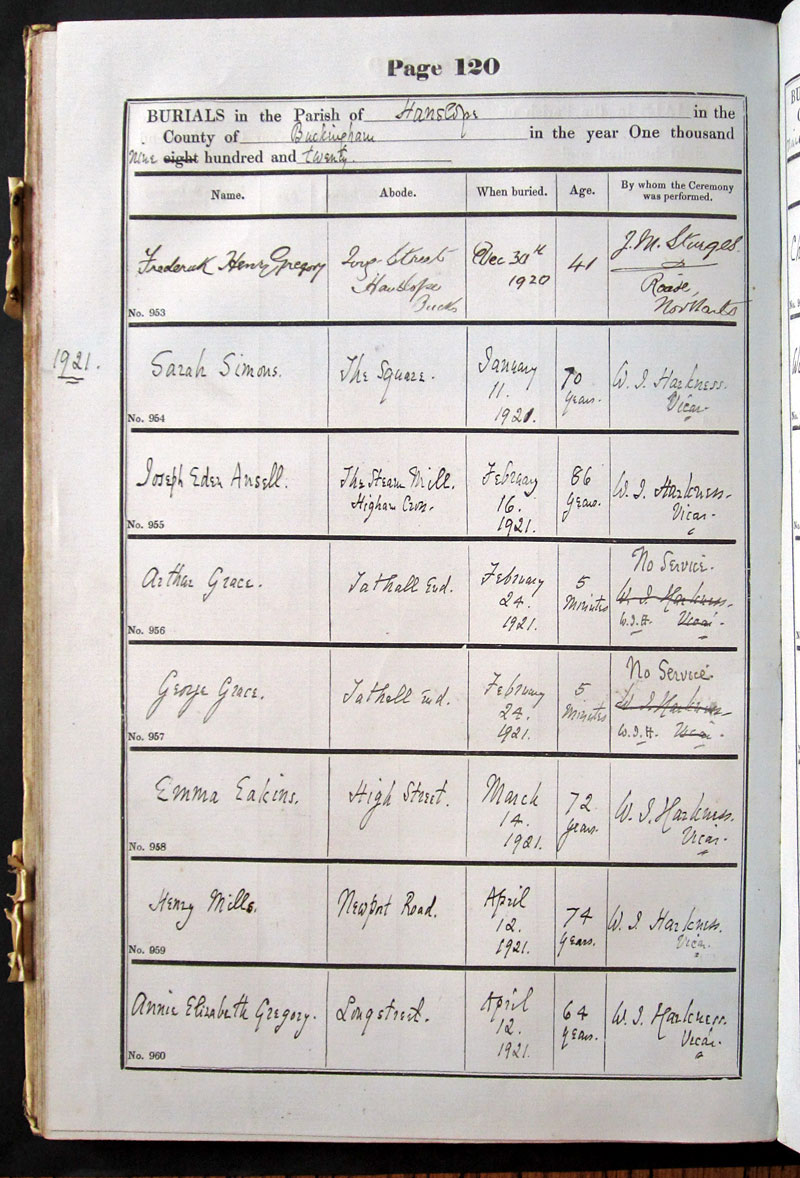 Page 120
BURIALS in the Parish of Hanslope in the
County of Buckingham in the year One thousand
nine eight hundred and twenty.
Name. Abode. When buried. Age. By whom the Ceremony was performed.
Frederick Henry Gregory
No. 953
Long Street
Hanslope
Bucks
Dec 30th
1920
41
J. M. Sturges
Roade,
Northants
1921.
Sarah Simons.
No. 954
The Square.
January
11.
1921.
70
years.
W. J. Harkness.
Vicar.
Joseph Eden Ansell.
No. 955
The Steam Mill.
Higham Cross.
February
16.
1921.
86
years.
W. J. Harkness.
Vicar.
Arthur Grace.
No. 956
Tathall End.
February
24.
1921.
5
Minutes
No Service.
W. J. Harkness.
W.J.H. Vicar.
George Grace.
No. 957
Tathall End.
February
24.
1921.
5
Minutes
No Service.
W. J. Harkness.
W.J.H. Vicar.
Emma Eakins.
No. 958
High Street.
March
14.
1921.
72
years.
W. J. Harkness.
Vicar.
Henry Mills.
No. 959
Newport Road.
April
12.
1921.
74
years.
W. J. Harkness.
Vicar.
Annie Elizabeth Gregory.
No. 960
Longstreet.
April
12.
1921.
64
years.
W. J. Harkness.
Vicar.